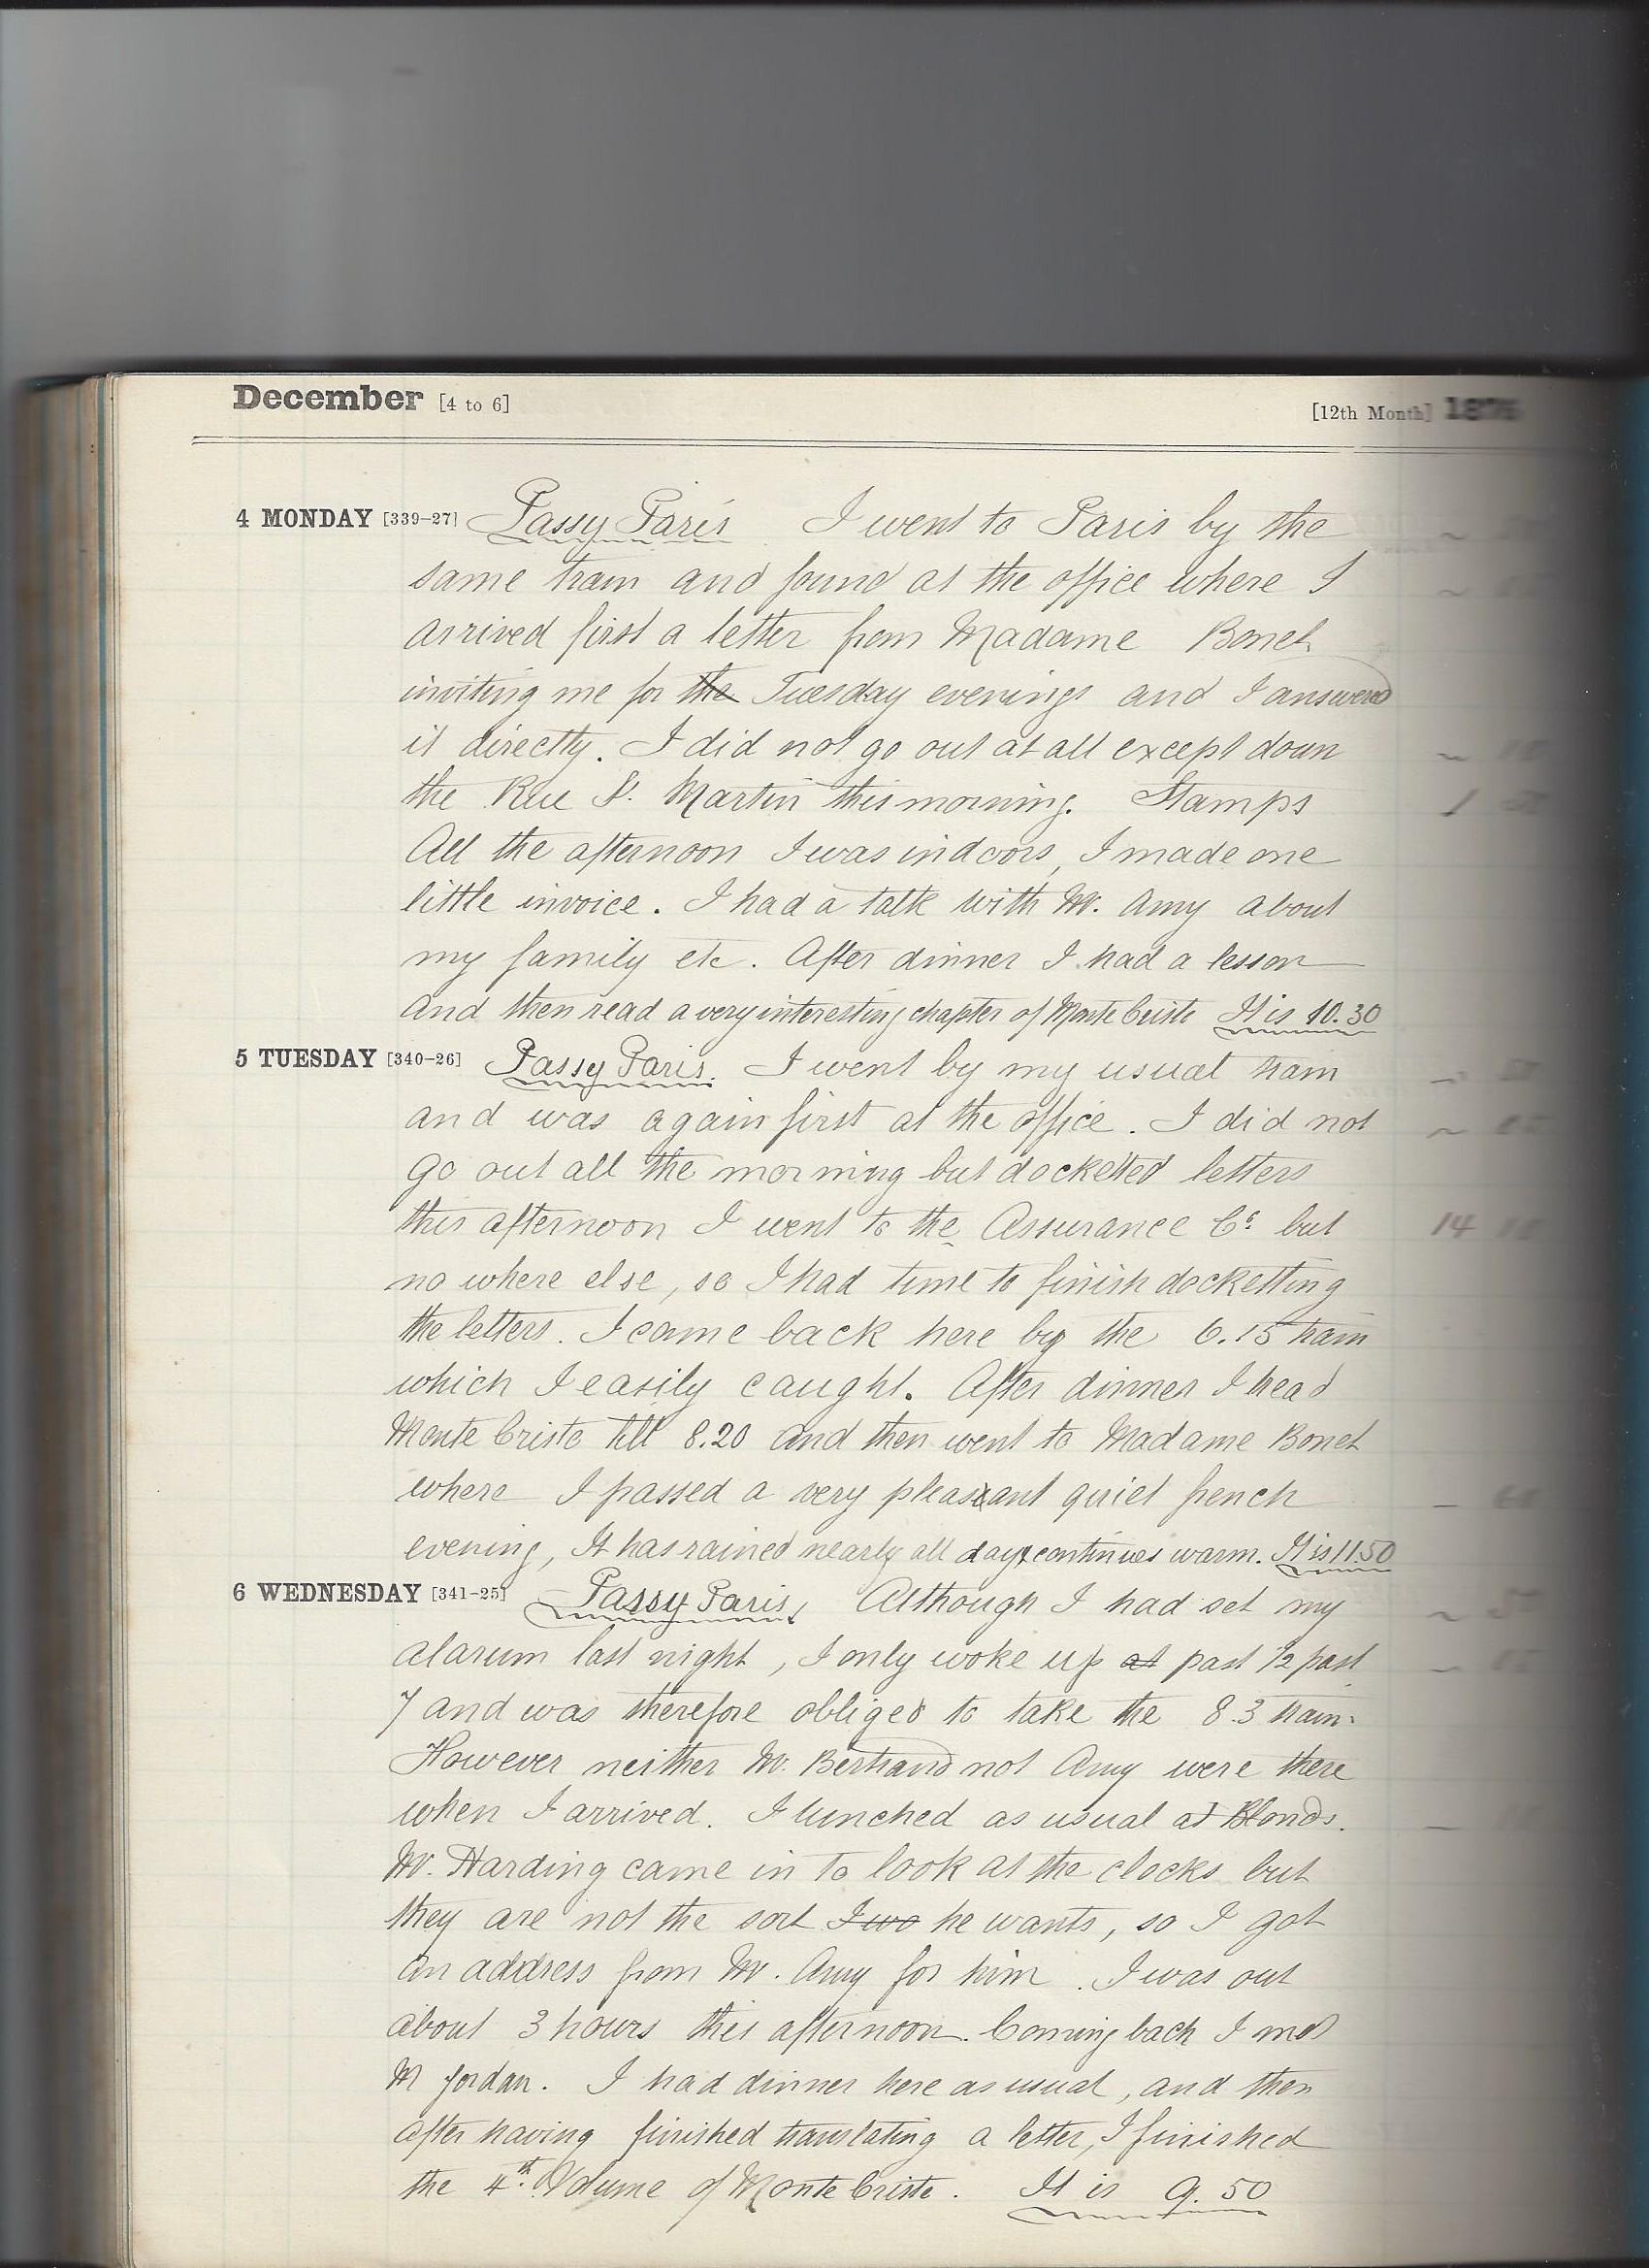 December [4 to 6] [12th Month] 1876
4 MONDAY [339-27] Passy Paris I went to Paris by the
same train and found at the office where I
arrived first a letter from Madame Bonet
inviting me for the Tuesday evenings and I answered
it directly. I did not go out at all except down
the Rue St. Martin this morning. Stamps
All the afternoon I was indoors, I made one
little invoice. I had a talk with Mr. Amy about
my family etc. After dinner I had a lesson
and then read a very interesting chapter of Monte Cristo It is 10.30
5 TUESDAY [340-26] Passy Paris. I went by my usual train
and was again first at the office. I did not
go out all the morning but docketted letters
this afternoon I went to the Assurance Co. but 14
no where else, so I had time to finish docketting
the letters. I came back here by the 6.15 train
which I easily caught. After dinner I read
Monte Cristo till 8.20 and then went to Madame Bonet
where I passed a very pleasant quiet french
evening, It has rained nearly all day & continues warm. It is 11.50
6 WEDNESDAY [341-25] Passy Paris, Although I had set my
alarum last night, I only woke up at past 1/2 past
7 and was therefore obliged to take the 8.3 train.
However neither Mr. Bertrand not Amy were there
when I arrived. I lunched as usual at Blonds.
Mr. Harding came in to look at the clocks but
they are not the sort I wo he wants, so I got
an address from Mr. Amy for him. I was out
about 3 hours this afternoon. Coming back I met
M Jordan. I had dinner here as usual, and then
after having finished translating a letter, I finished
the 4th. Volume of Monte Cristo. It is 9.50